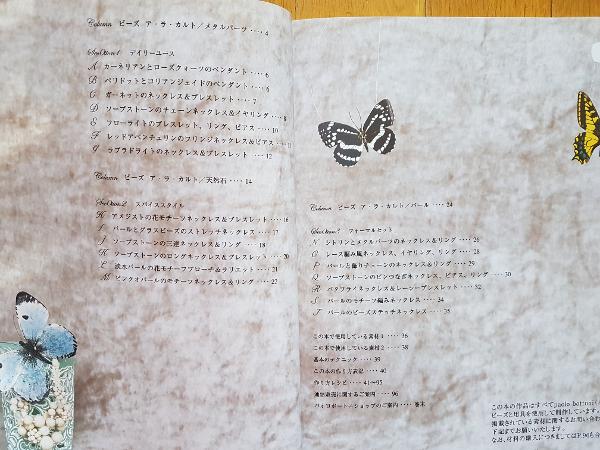 Column ビーズ ア・ラ・カルト／メタルパーツ ‥‥ 4
Section 1 デイリーユース
A カーネリアンとローズクォーツのペンダント ‥‥ 6
B ペリドットとコリアンジェイドのペンダント ‥‥ 6
C ガーネットのネックレス＆ブレスレット ‥‥ 7
D ソープストーンのチェーンネックレス＆イヤリング ‥‥ 8
E フローライトのブレスレット、リング、ピアス ‥‥ 10
F レッドアベンチュリンのフリンジネックレス＆ピアス ‥‥ 11
G ラブラドライトのネックレス＆ブレスレット ‥‥ 12
Column ビーズ ア・ラ・カルト／天然石 ‥‥ 14
Section 2 スパイススタイル
H アメジストの花モチーフネックレス＆ブレスレット ‥‥ 16
I パールとグラスビーズのストレッチネックレス ‥‥ 17
J ソープストーンの三連ネックレス＆リング ‥‥ 18
K ソープストーンのロングネックレス＆ブレスレット ‥‥ 20
L 淡水パールの花モチーフブローチ＆ラリエット ‥‥ 21
M ビッグオパールのモチーフネックレス＆リング ‥‥ 22
Column ビーズ ア・ラ・カルト／パール ‥‥ 24
Section 3 フォーマルヒット
N シトリンとメタルパーツのネックレス＆リング ‥‥ 26
O レース編み風ネックレス、イヤリング、リング ‥‥ 28
P パールと飾り子チェーンのネックレス＆リング ‥‥ 29
Q ソープストーンのピンつなぎネックレス、ピアス、リング ‥‥ 30
R バタフライネックレス＆レーシーブレスレット ‥‥ 32
S パールのモチーフ編みネックレス ‥‥ 34
T パールのビーズステッチネックレス ‥‥ 35
この本で使用している素材1 ‥‥ 36
この本で使用している素材2 ‥‥ 38
基本のテクニック ‥‥ 39
この本の作り方表記 ‥‥ 40
作り方レシピ ‥‥ 41〜95
通信販売に関するご案内 ‥‥ 96
パオロボトーニショップのご案内 ‥‥ 巻末
この本の作品はすべてpaolo bottoni
ビーズと用具を使用して制作しています。
掲載されている素材に関するお問い合わ
下記までお願いいたします。
なお、材料の購入につきましてはP.96も合